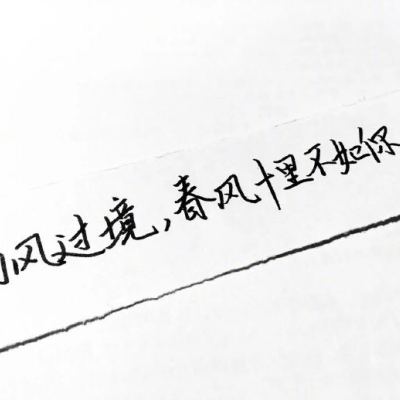 风过境,春风十里不如你